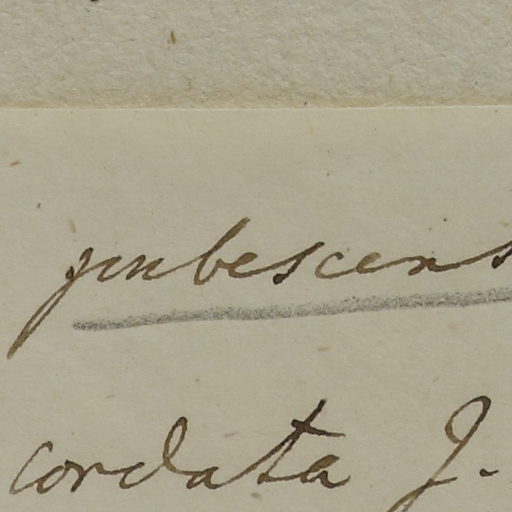 pubescens
cordata J.